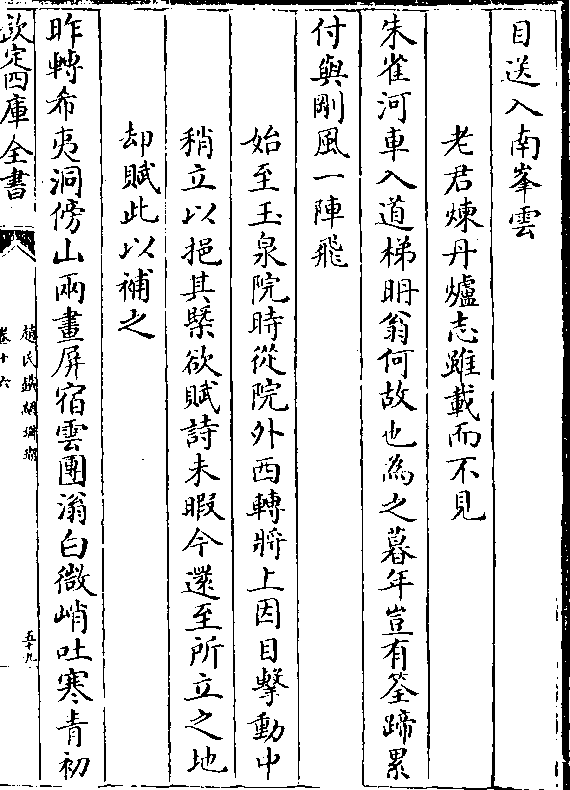 目送入南峯雲
老君煉丹爐志雖載而不見
朱雀河車入道梯冊翁何故也為之暮年豈有筌蹄累
付與剛風一陣飛
始至玉泉院時從院外西轉將上因目擊動中
稍立以挹其槩欲賦詩未暇今還至所立之地
却賦此以補之
昨轉希夷洞傍山兩畫屏宿雲團滃白微峭吐寒青初
欽定四庫全書
卷十六
趙氏鐵網珊瑚
五十九